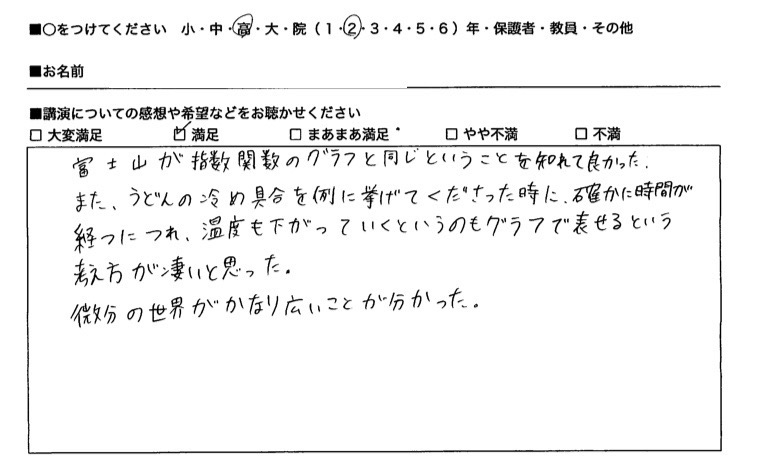 ■○をつけてください 小・中・高・大・院（1・2・3・4・5・6）年・保護者・教員・その他
■お名前
■講演についての感想や希望などをお聴かせください
□ 大変満足 ☑ 満足 □ まあまあ満足 □ やや不満 □ 不満
富士山が指数関数のグラフと同じということを知れて良かった.
また、うどんの冷め具合を例に挙げてくださった時に、確かに時間が
経つにつれ、温度も下がっていくというのもグラフで表せるという
考え方が凄いと思った。
微分の世界がかなり広いことが分かった。